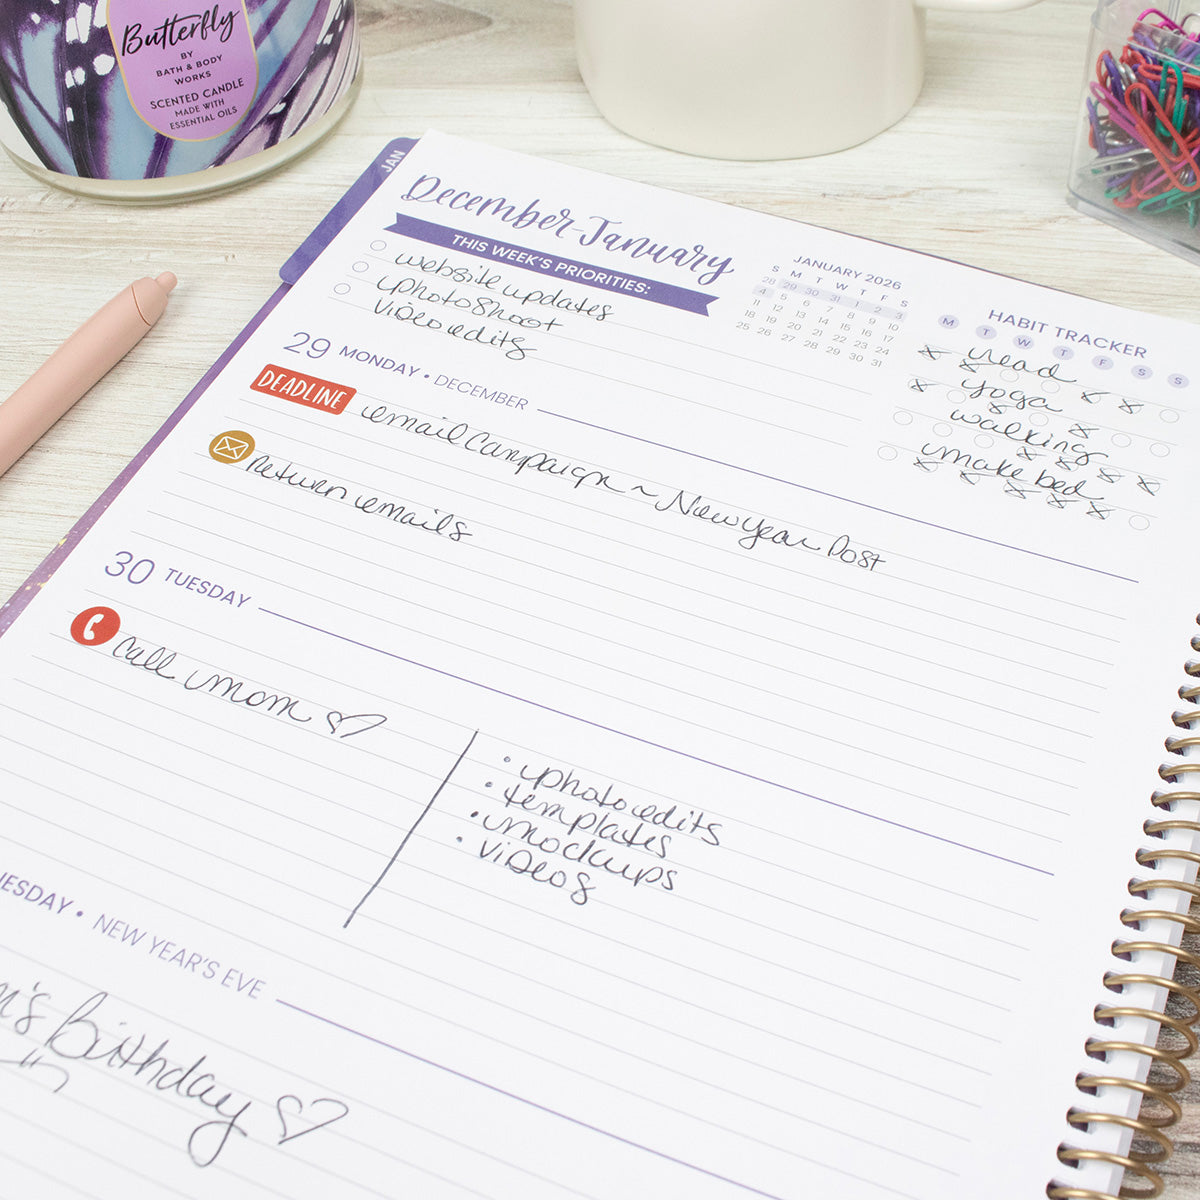 Butterfly
BY
BATH & BODY
WORKS
SCENTED CANDLE
MADE WITH
ESSENTIAL OILS
JAN
December-January
THIS WEEK'S PRIORITIES:
website updates
photoshoot
video edits
JANUARY 2026
S M T W T F S
28 29 30 31 1 2 3
4 5 6 7 8 9 10
11 12 13 14 15 16 17
18 19 20 21 22 23 24
25 26 27 28 29 30 31
HABIT TRACKER
M T W T F S S
read
yoga
walking
make bed
29 MONDAY • DECEMBER
DEADLINE email campaign ~ New Year Post
return emails
30 TUESDAY
call mom
• photo edits
• templates
• mockups
• videos
ESDAY • NEW YEAR'S EVE
's Birthday